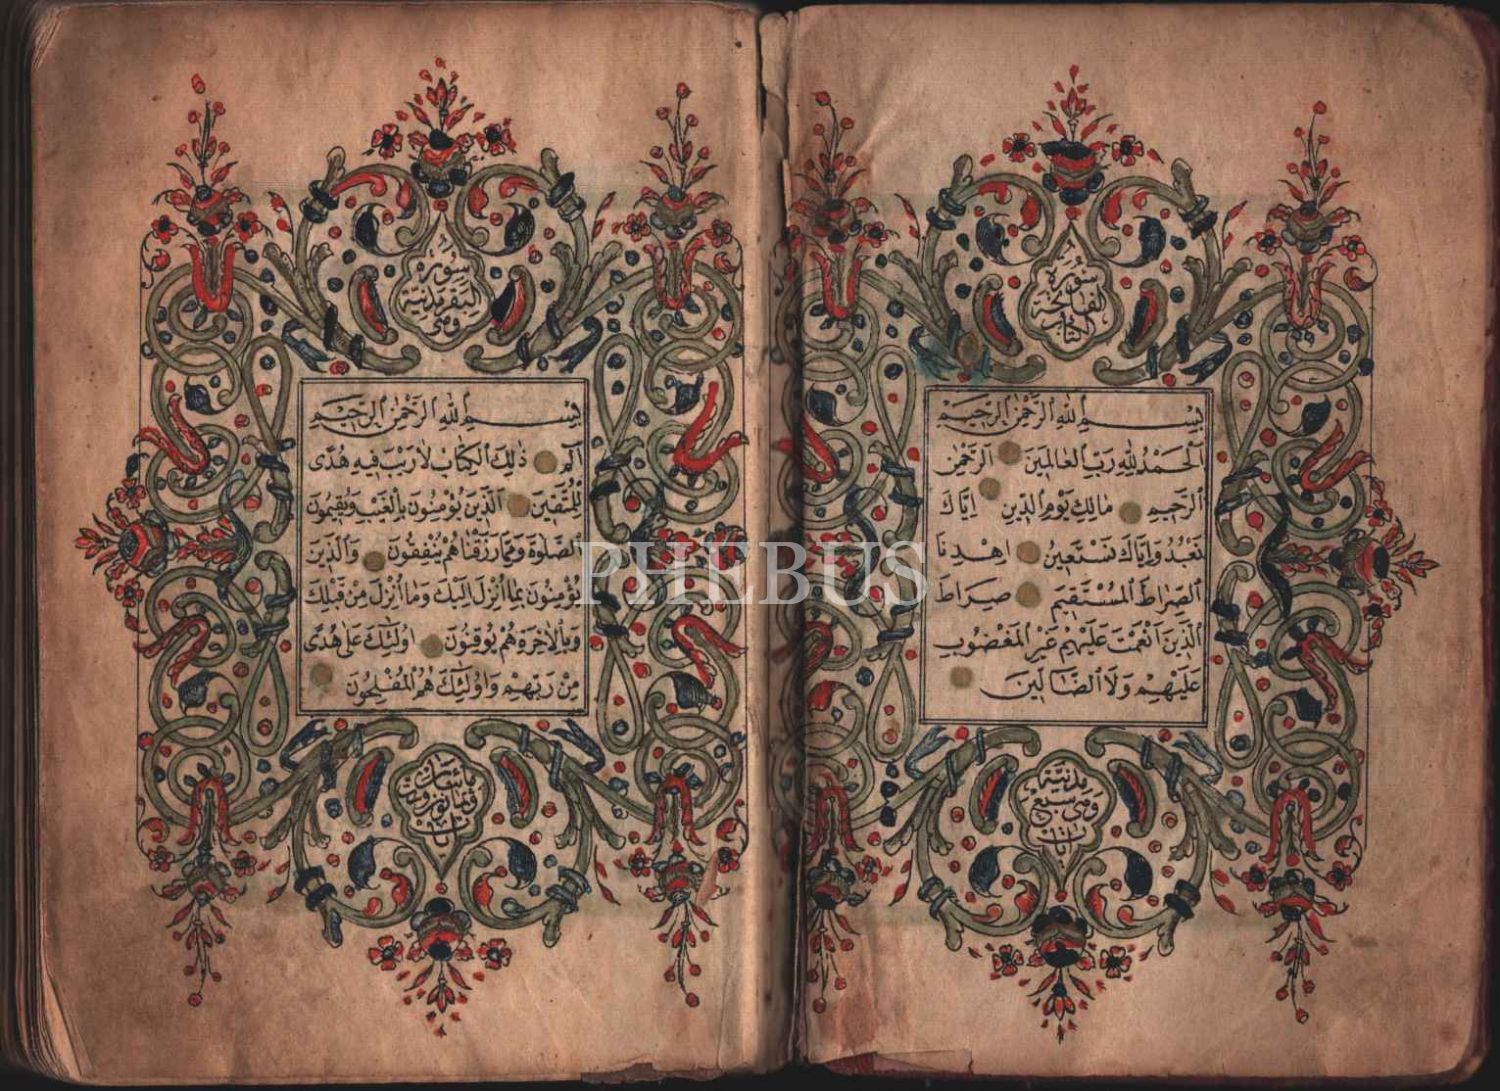 سورة
الفاتحة
الكتاب
بِسْمِ اللهِ الرَّحْمٰنِ الرَّحِيمِ
اَلْحَمْدُ لِلهِ رَبِّ الْعَالَمِينَ اَلرَّحْمٰنِ
الرَّحِيمِ مَالِكِ يَوْمِ الدِّينِ اِيَّاكَ
نَعْبُدُ وَاِيَّاكَ نَسْتَعِينُ اِهْدِنَا
الصِّرَاطَ الْمُسْتَقِيمَ صِرَاطَ
الَّذِينَ اَنْعَمْتَ عَلَيْهِمْ غَيْرِ الْمَغْضُوبِ
عَلَيْهِمْ وَلَا الضَّالِّينَ
مدنية
وهى سبع
ايات
سورة
البقرة مدنية
وهى
بِسْمِ اللهِ الرَّحْمٰنِ الرَّحِيمِ
الٓمٓ ذٰلِكَ الْكِتَابُ لَا رَيْبَ فِيهِ هُدًى
لِلْمُتَّقِينَ اَلَّذِينَ يُؤْمِنُونَ بِالْغَيْبِ وَيُقِيمُونَ
الصَّلٰوةَ وَمِمَّا رَزَقْنَاهُمْ يُنْفِقُونَ وَالَّذِينَ
يُؤْمِنُونَ بِمَا اُنْزِلَ اِلَيْكَ وَمَا اُنْزِلَ مِنْ قَبْلِكَ
وَبِالْاٰخِرَةِ هُمْ يُوقِنُونَ اُولٰئِكَ عَلٰى هُدًى
مِنْ رَبِّهِمْ وَاُولٰئِكَ هُمُ الْمُفْلِحُونَ
مائتان
وثمانون وست
ايات
PHEBUS